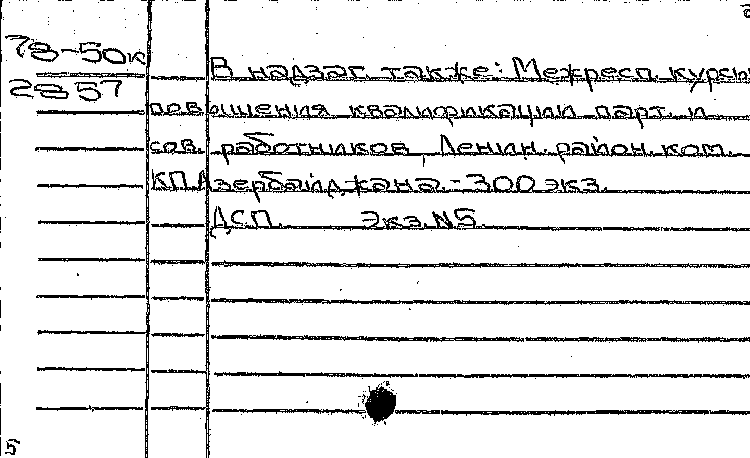 78-50к
2857
В надзаг. также: Межресп. курсы
повышения квалификации парт. и
сов. работников, Ленин. район. ком.
КП Азербайджана. - 300 экз.
ДСП. Экз. N5.
5